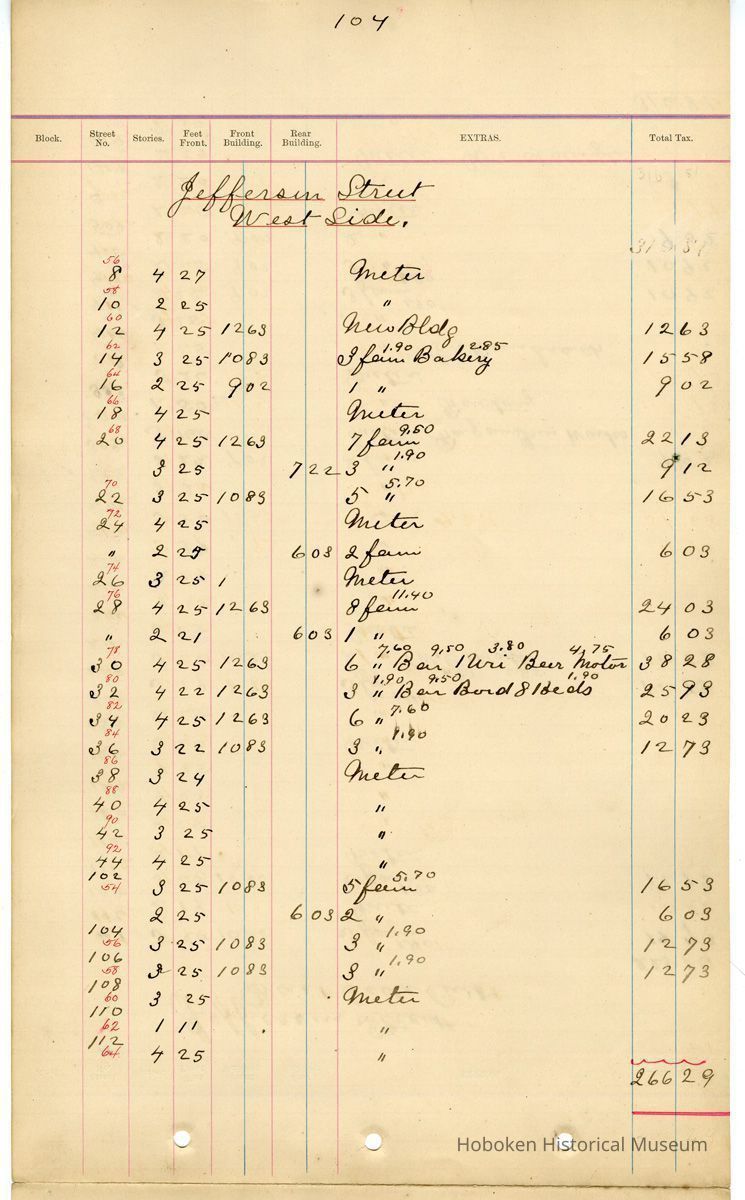 104
Block. Street No. Stories. Feet Front. Front Building. Rear Building. EXTRAS. Total Tax.
Jefferson Street
West Side.
56
8 4 27 Meter
58
10 2 25 "
60
12 4 25 1263 New Bldg 1263
62 1.90 2.85
14 3 25 1083 3 fam Bakery 1558
64
16 2 25 902 1 " 902
66
18 4 25 Meter
68 9.50
20 4 25 1263 7 fam 2213
1.90
3 25 722 3 " 912
70 5.70
22 3 25 1083 5 " 1653
72
24 4 25 Meter
" 2 25 603 2 fam 603
74
26 3 25 1 Meter
76 11.40
28 4 25 1263 8 fam 2403
" 2 21 603 1 " 603
78 7.60 9.50 3.80 4.75
30 4 25 1263 6 " Bar 1 Uri Beer Motor 3828
80 1.90 9.50 1.90
32 4 22 1263 3 " Bar Bord 8 Beds 2593
82 7.60
34 4 25 1263 6 " 2023
84 1.90
36 3 22 1083 3 " 1273
86
38 3 24 Meter
88
40 4 25 "
90
42 3 25 "
92
44 4 25 "
102 5.70
54 3 25 1083 5 fam 1653
2 25 603 2 " 603
104 1.90
56 3 25 1083 3 " 1273
106 1.90
58 3 25 1083 3 " 1273
108
60 3 25 Meter
110
62 1 11 "
112
64 4 25 "
26629
Hoboken Historical Museum